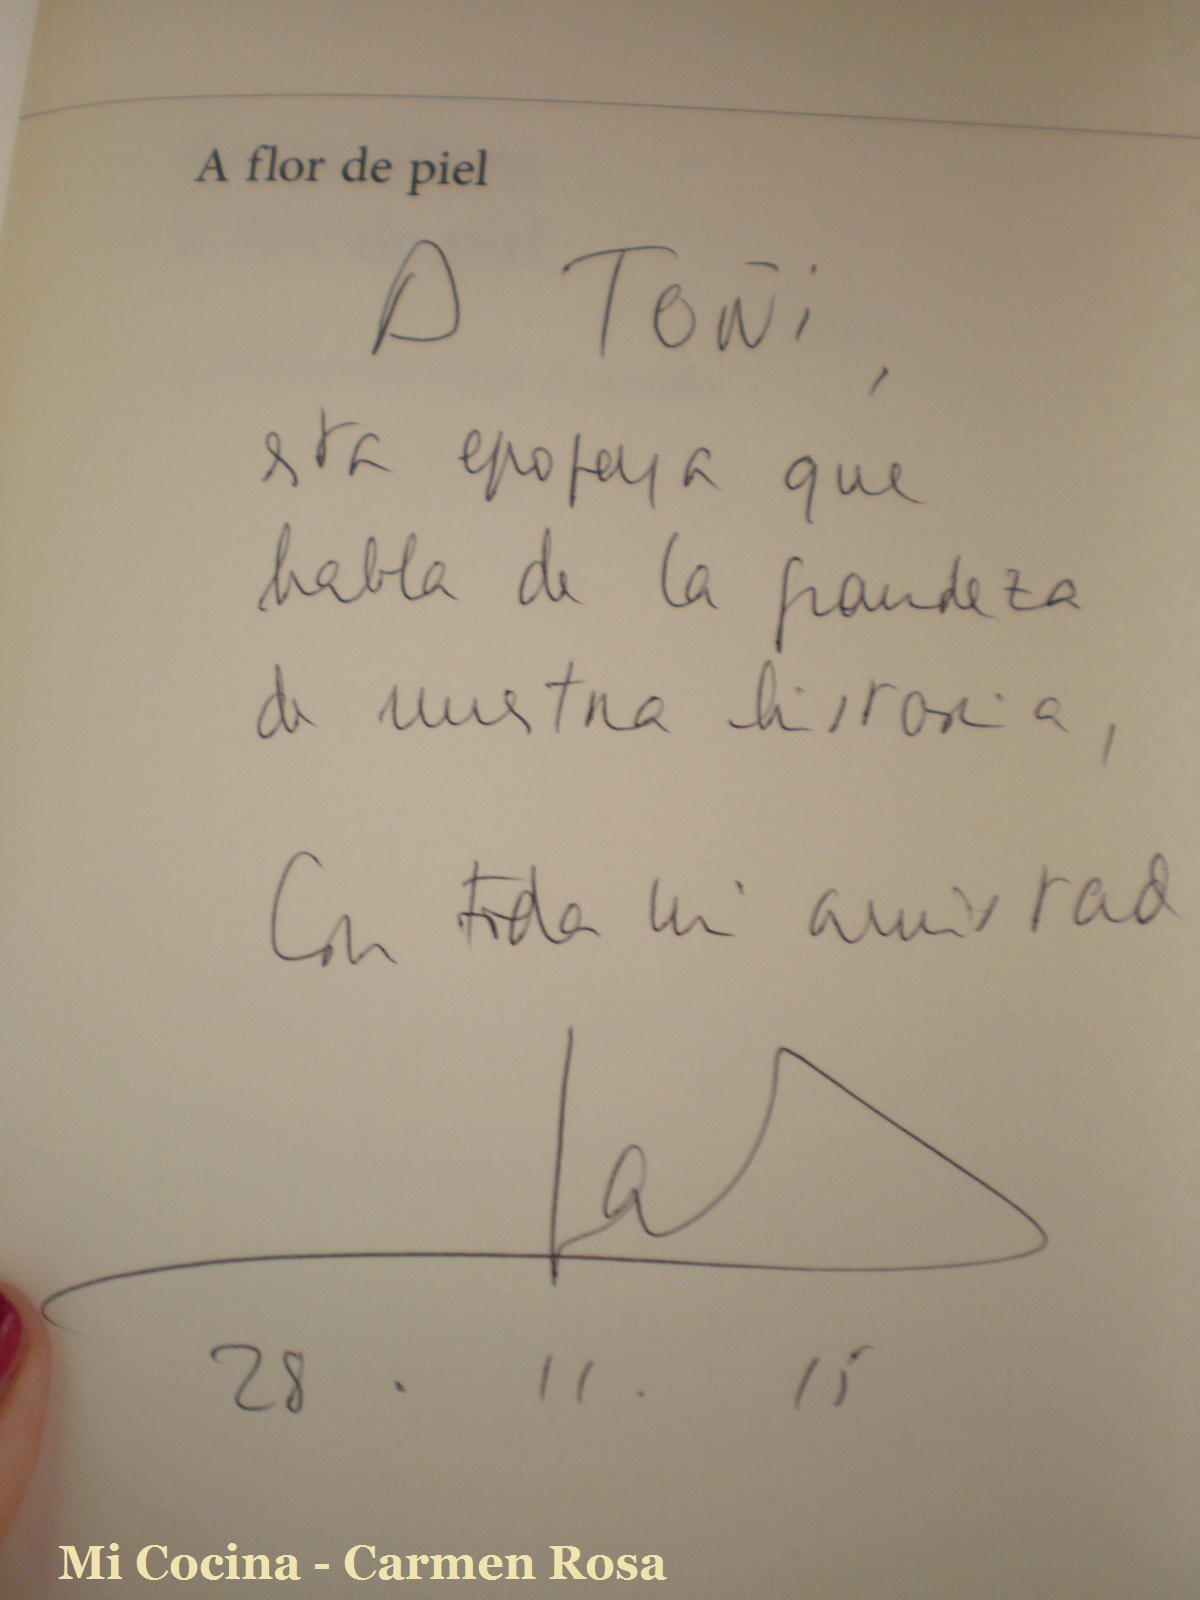 A flor de piel
A Toñi,
esta epopeya que
habla de la grandeza
de nuestra historia,
Con toda mi amistad
28 . 11 . 15
Mi Cocina - Carmen Rosa